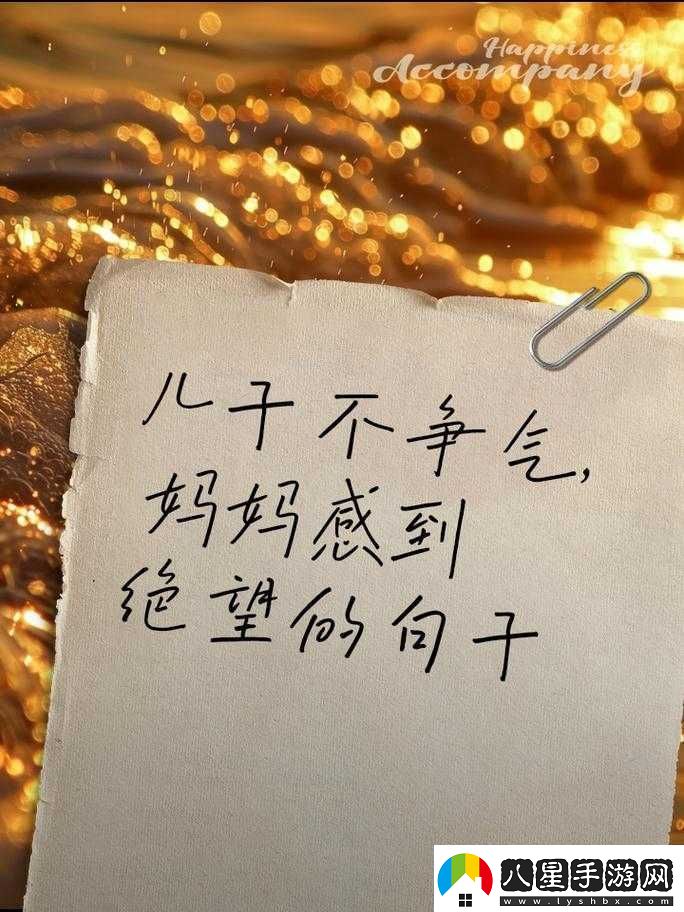 Happiness
Accompany
儿子不争气,
妈妈感到
绝望的句子
八星手游网
www.lyshbx.com